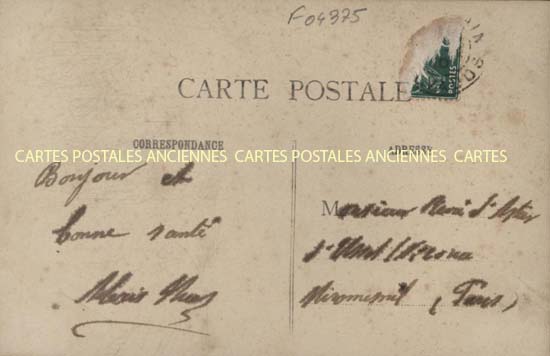 F04375
CARTE POSTALE
POSTES
CORRESPONDANCE
ADRESSE
CARTES POSTALES ANCIENNES CARTES POSTALES ANCIENNES CARTES
Bonjour et
bonne santé
Alexis
Monsieur René d'
Miromesnil (Paris)